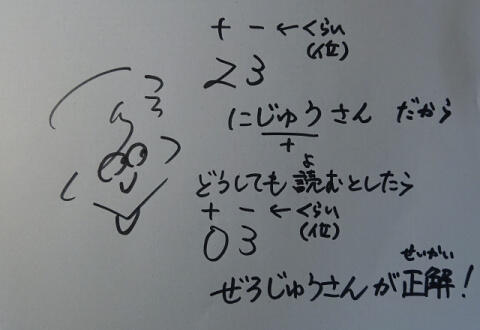 十 一 ←くらい
(位)
23
にじゅうさん だから
十
よ
どうしても読むとしたら
十 一 ←くらい
(位)
03
せいかい
ぜろじゅうさんが正解!